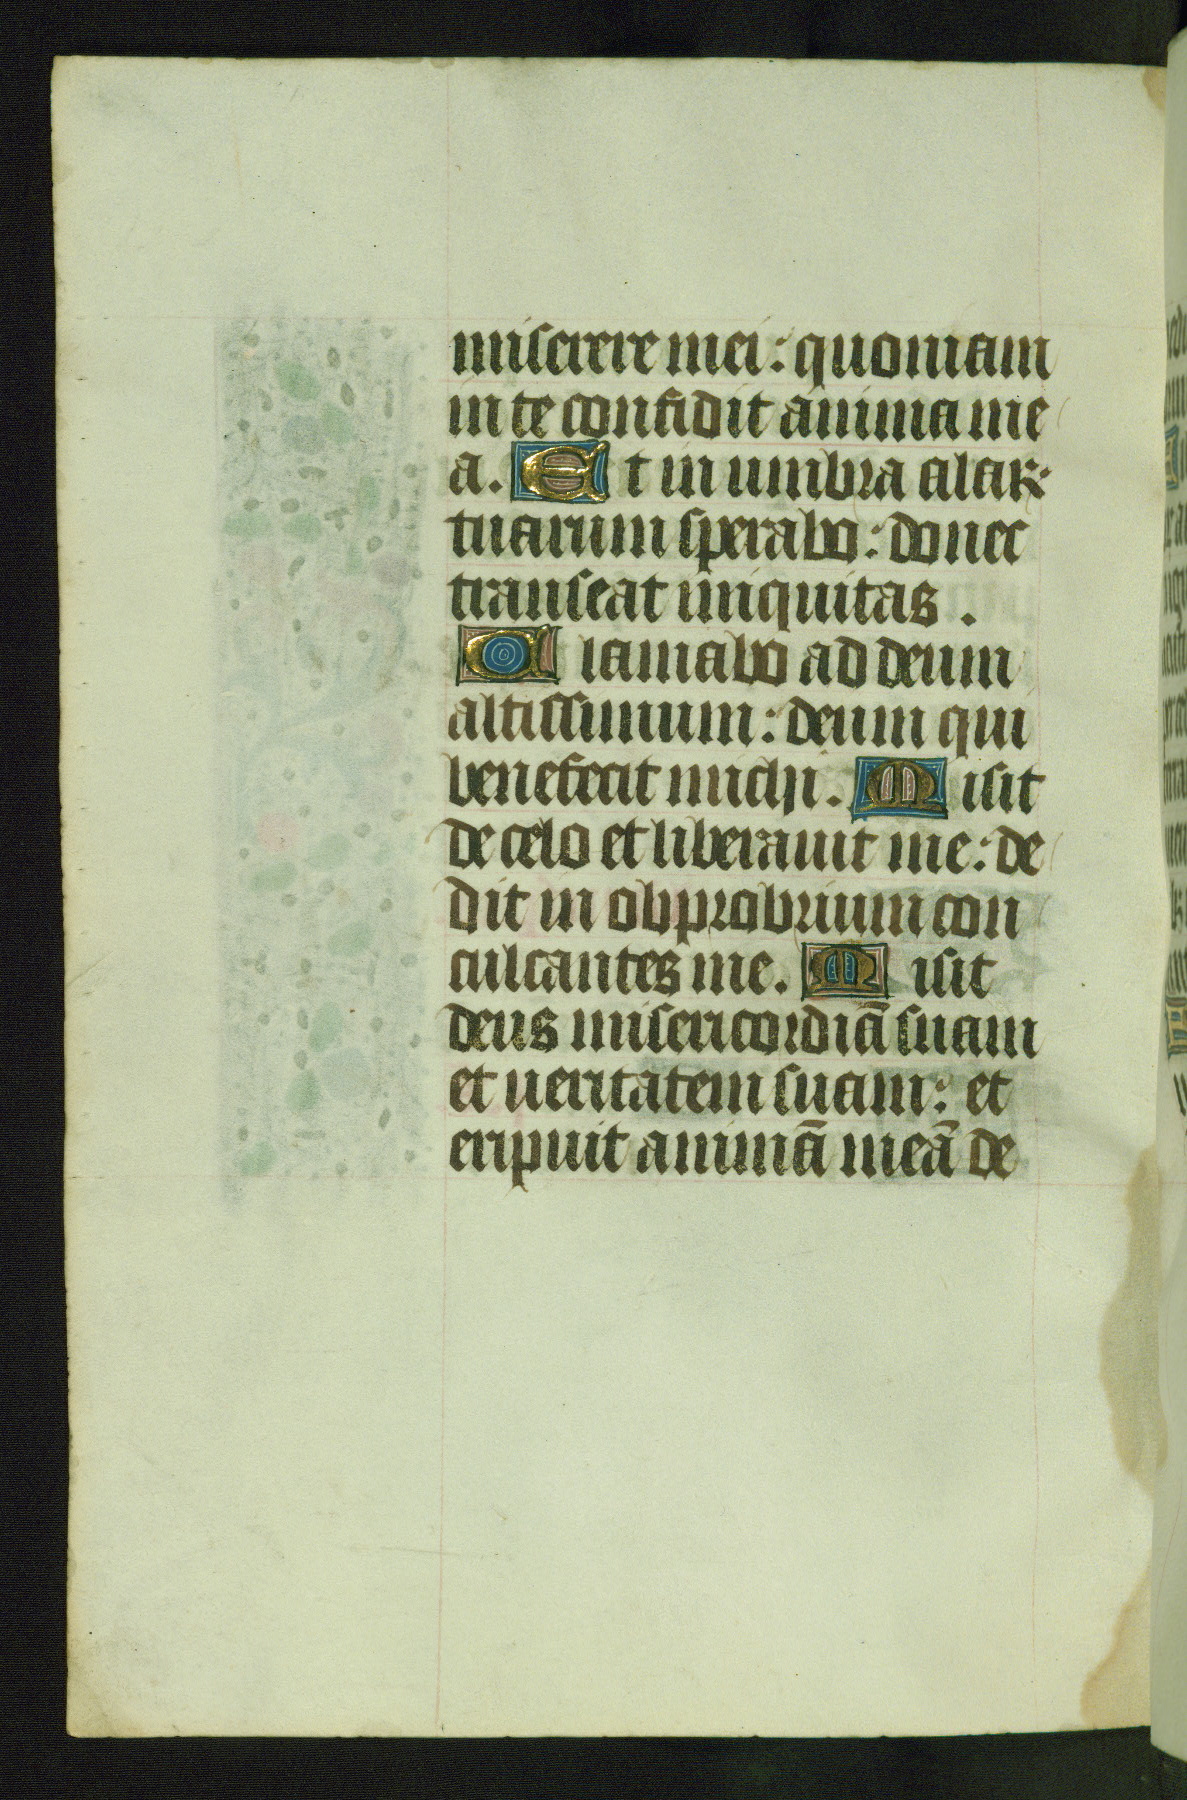 miserere mei: quoniam
in te confidit anima me
a. Et in umbra alaꝝ
tuarum sperabo: donec
transeat iniquitas.
Clamabo ad deum
altissimum: deum qui
benefecit michi. Misit
de celo et liberauit me: de
dit in obprobrium con
culcantes me. Misit
deus misericordiā suam
et ueritatem suam: et
eripuit animā meā de